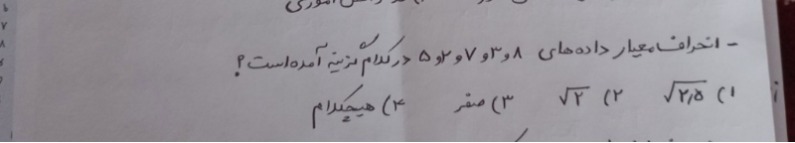 - انحراف معیار داده‌های ۸ و ۳ و ۷ و ۲ و ۵ در کدام گزینه آمده است؟
۱) √۲٫۵ ۲) √۲ ۳) صفر ۴) هیچکدام